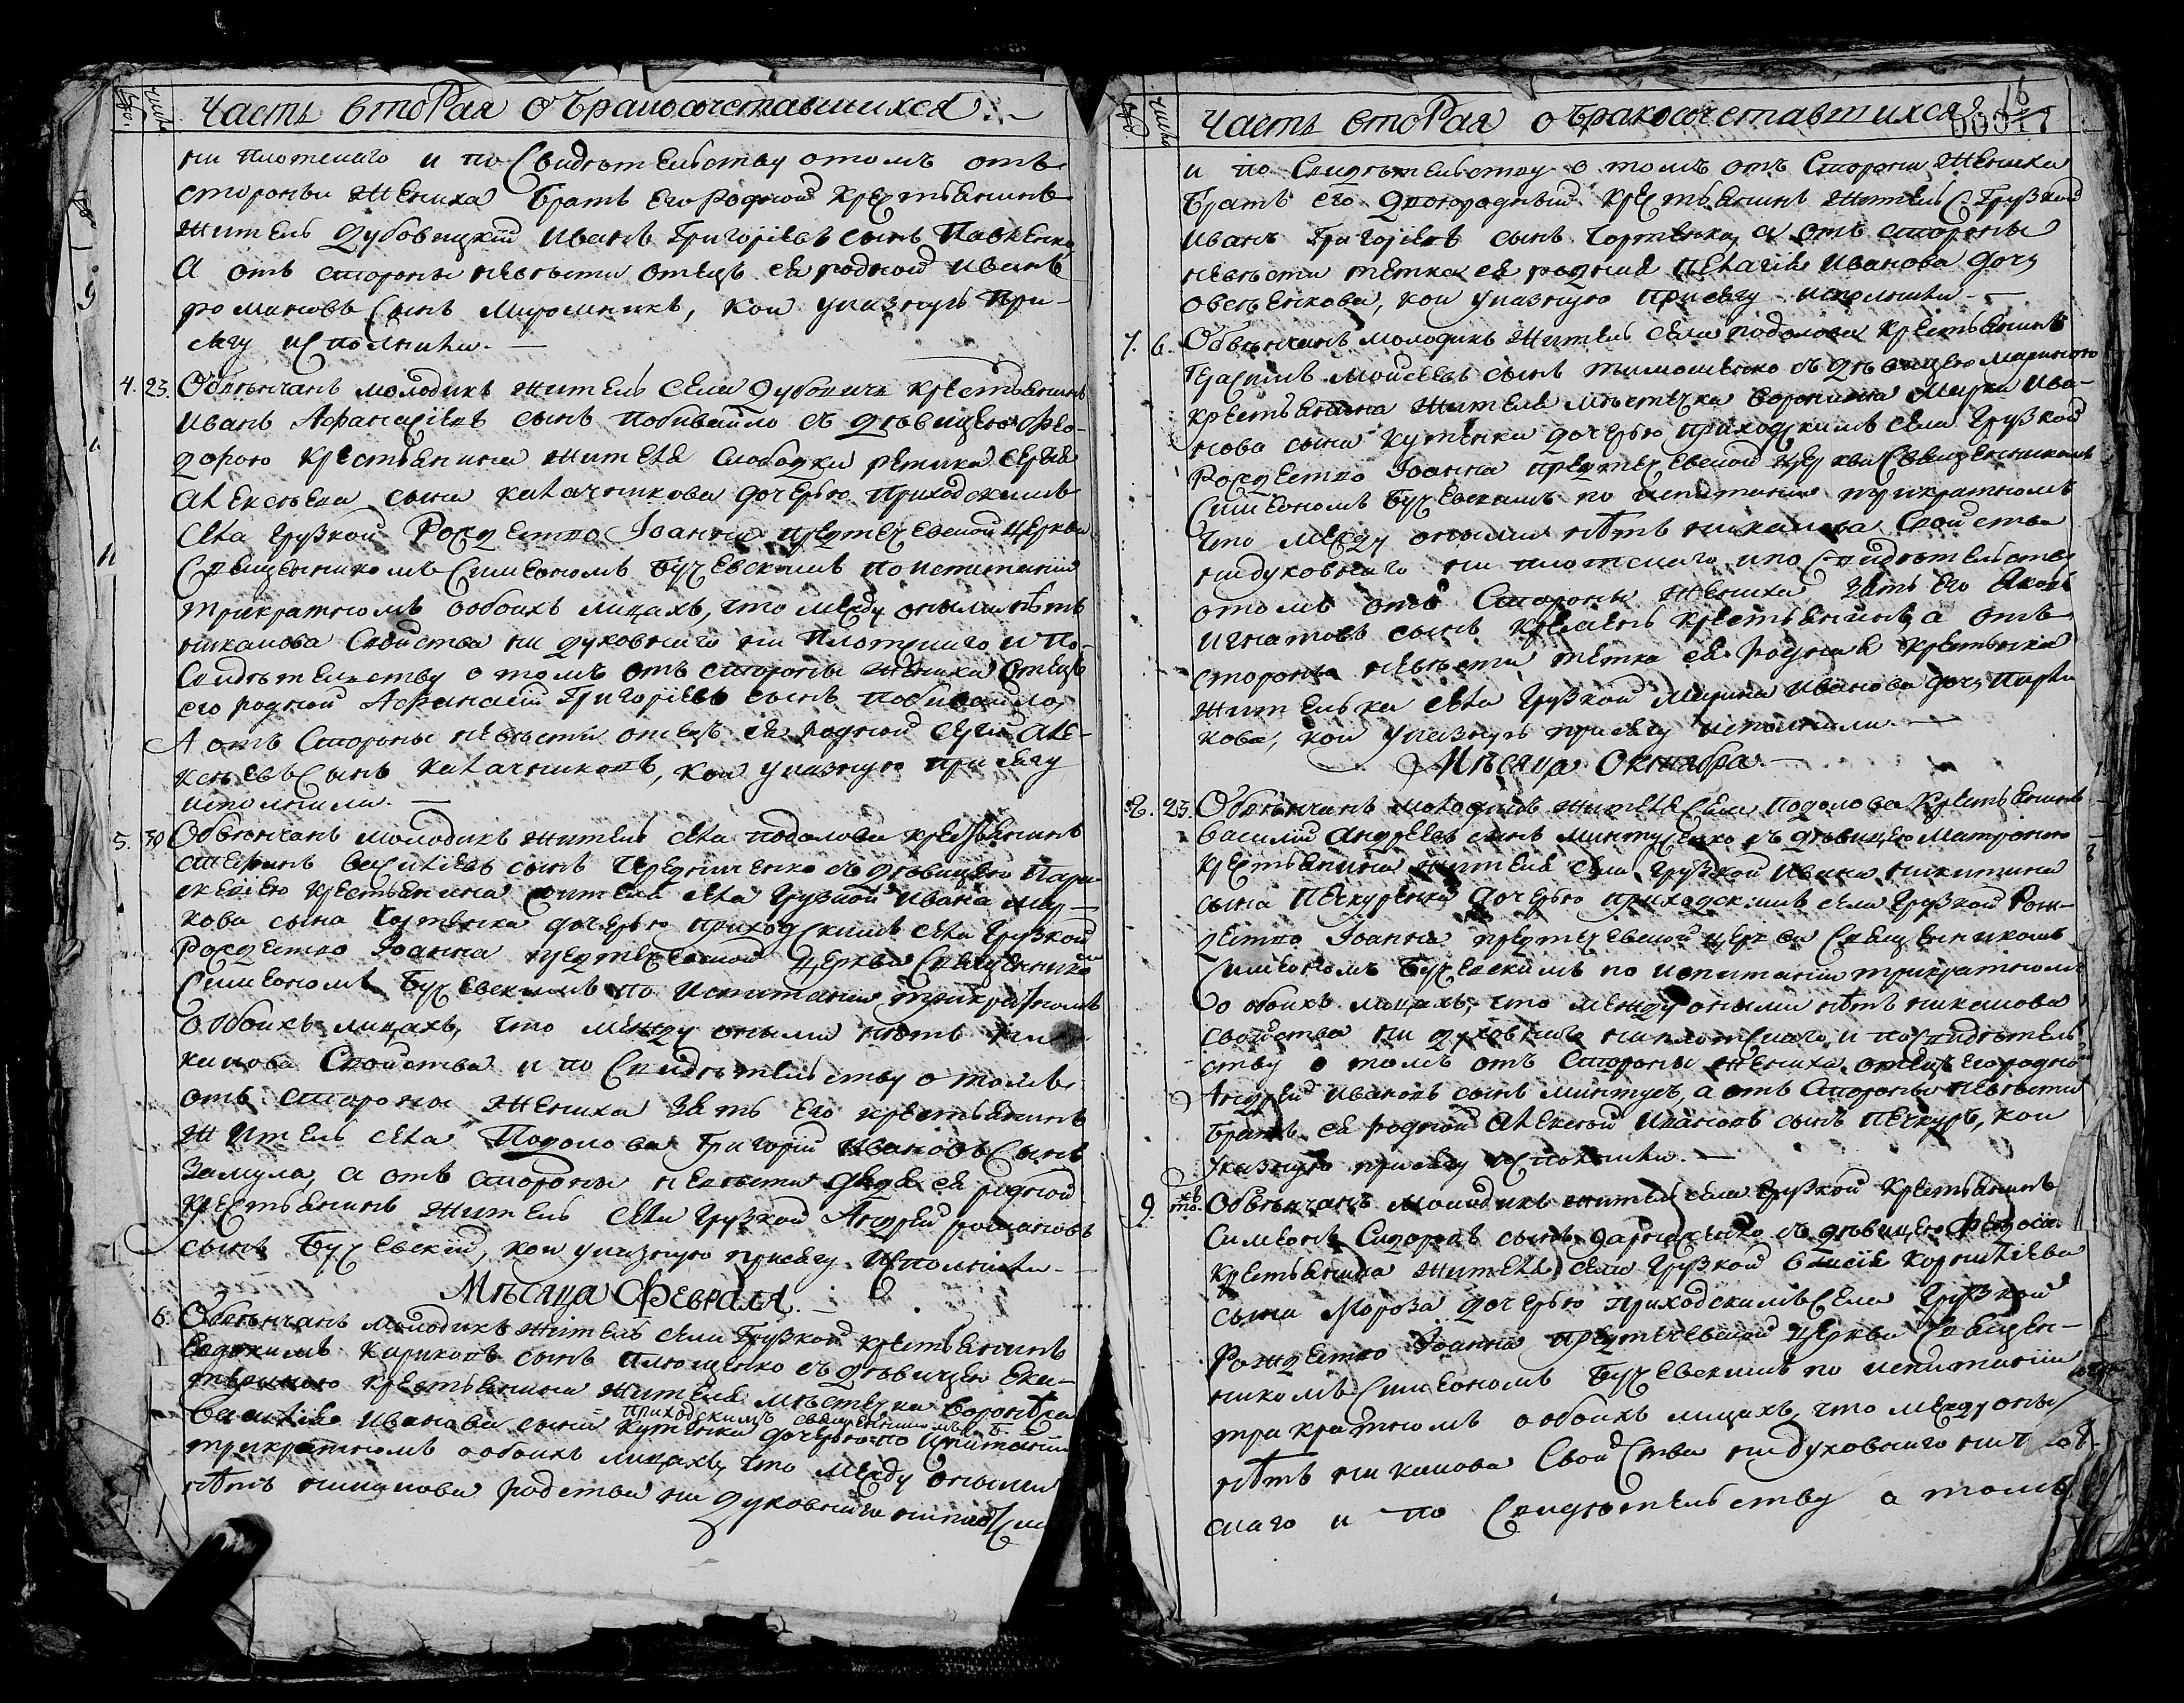 Часть вторая о бракосочетавшихся.
ни плотскаго и по свидѣтельству отомъ отъ
стороны жениха братъ его родной крестьянинъ
житель дубовицкій Иванъ Григоріевъ сынъ Павленко
а отъ стороны невѣсти отецъ ея родной Иванъ
романовъ сынъ Мирошникъ, кои указную при-
сягу исполнили.
4. 23. Обвѣнчанъ молодикъ житель села дубовичъ крестьянинъ
Иванъ Афанасіевъ сынъ Побивайло съ дѣвицею Фео-
дорою крестьянина жителя слободки ретика Сергія
Алексѣева сына калачникова дочерью Приходскимъ
села грузкой Рождество Іоанна предтечевской церкви
Священникомъ Симеономъ Бучевскимъ по испитаніи
трикратномъ о обоихъ лицахъ, что между оными нѣтъ
никакова свойства ни духовнаго ни плотскаго и по
свидѣтельству о томъ отъ стороны жениха отецъ
его родной Афанасій Григоріевъ сынъ побивайло,
А отъ стороны невѣсти отецъ ея родной Сергій Але-
ксѣевъ сынъ калачниковъ, кои указную присягу
исполнили.
5. 30 Обвѣнчанъ молодикъ житель села подолова крестьянинъ
Стефанъ Василіевъ сынъ Чередниченко съ дѣвицею Пара-
скевіею крестьянина жителя села грузкой Ивана Мар-
кова сына Чортенка дочерью приходскимъ села грузкой
Рождество Іоанна предтечевской церкви Священникомъ
Симеономъ Бучевскимъ по испитаніи трикратномъ
о обоихъ лицахъ, что между оными нѣтъ ни
какова свойства и по свидѣтельству о томъ
отъ стороны жениха зять его крестьянинъ
житель села Подолова Григорій Ивановъ сынъ
Замула, а отъ стороны невѣсти дядя ея родной
крестьянинъ житель села грузкой Андрей романовъ
сынъ Бучевскій, кои указную присягу исполнили.
Мѣсяца Февраля.
6. Обвѣнчанъ молодикъ житель села Грузкой крестьянинъ
Евдокимъ Кириковъ сынъ Плющенко съ дѣвицею Ека-
териною крестьянина жителя мѣстечка Воронѣжа
приходскимъ священникомъ
Василія Иванова сына Кутенка дочерью по испитаніи
трикратномъ о обоихъ лицахъ, что между оными
нѣтъ никакова родства ни духовнаго ни плотска
Часть вторая о бракосочетавшихся
16
00017
и по свидѣтельству о томъ отъ стороны жениха
братъ его двоюродный крестьянинъ житель с. Грузкой
Иванъ Григоріевъ сынъ Чортенко, а отъ стороны
невѣсти тетка ея родная Пелагія Иванова дочь
овсѣенкова, кои указную присягу исполнили
7. 6. Обвѣнчанъ молодикъ житель села подолова крестьянинъ
Герасимъ Мойсеевъ сынъ тимошенко съ дѣвицею Мариною
крестьянина жителя мѣстечка Воронежа Марка Ива-
нова сына кутенка дочерью приходскимъ села грузкой
Рождество Іоанна предтечевской церкви Священникомъ
Симеономъ Бучевскимъ по испитаніи трикратномъ
что между оными нѣтъ никакова свойства
ни духовнаго ни плотскаго и по свидѣтельству
отомъ отъ стороны жениха зять его Яковъ
Игнатовъ сынъ Кремень крестьянинъ, а отъ
стороны невѣсти тетка ея родная крестьянка
жителька села Грузкой Марина Иванова дочь
кова, кои указную присягу исполнили.
Мѣсяца Октября.
8. 23. Обвѣнчанъ молодикъ житель села подолова крестьянинъ
Василій Андреевъ сынъ Минтусенко съ дѣвицею Матроною
крестьянина жителя села грузкой Ивана никитина
сына Печкуренка дочерью приходскимъ села грузкой Рож-
дество Іоанна предтечевской церкви Священникомъ
Симеономъ Бучевскимъ по испитаніи трикратномъ
о обоихъ лицахъ, что между оными нѣтъ никакова
свойства ни духовнаго ни плотскаго, и по свидѣтель-
ству о томъ отъ стороны жениха отецъ его родной
Андрей Ивановъ сынъ минтусъ, а отъ стороны невѣсти
братъ ея родной Алексѣй Ивановъ сынъ Печкуръ, кои
указную присягу исполнили.
9. Обвѣнчанъ молодикъ житель села грузкой крестьянинъ
Симеонъ Сидоровъ сынъ съ дѣвицею Феодосіею
крестьянина жителя села грузкой Власія корнилѣева
сына Мороза дочерью приходскимъ села грузкой
Рождество Іоанна предтечевской церкви Священ-
никомъ Симеономъ Бучевскимъ по испитаніи
трикратномъ о обоихъ лицахъ, что между оны
нѣтъ никакова свойства ни духовнаго ни плот-
скаго и по свидѣтельству о томъ